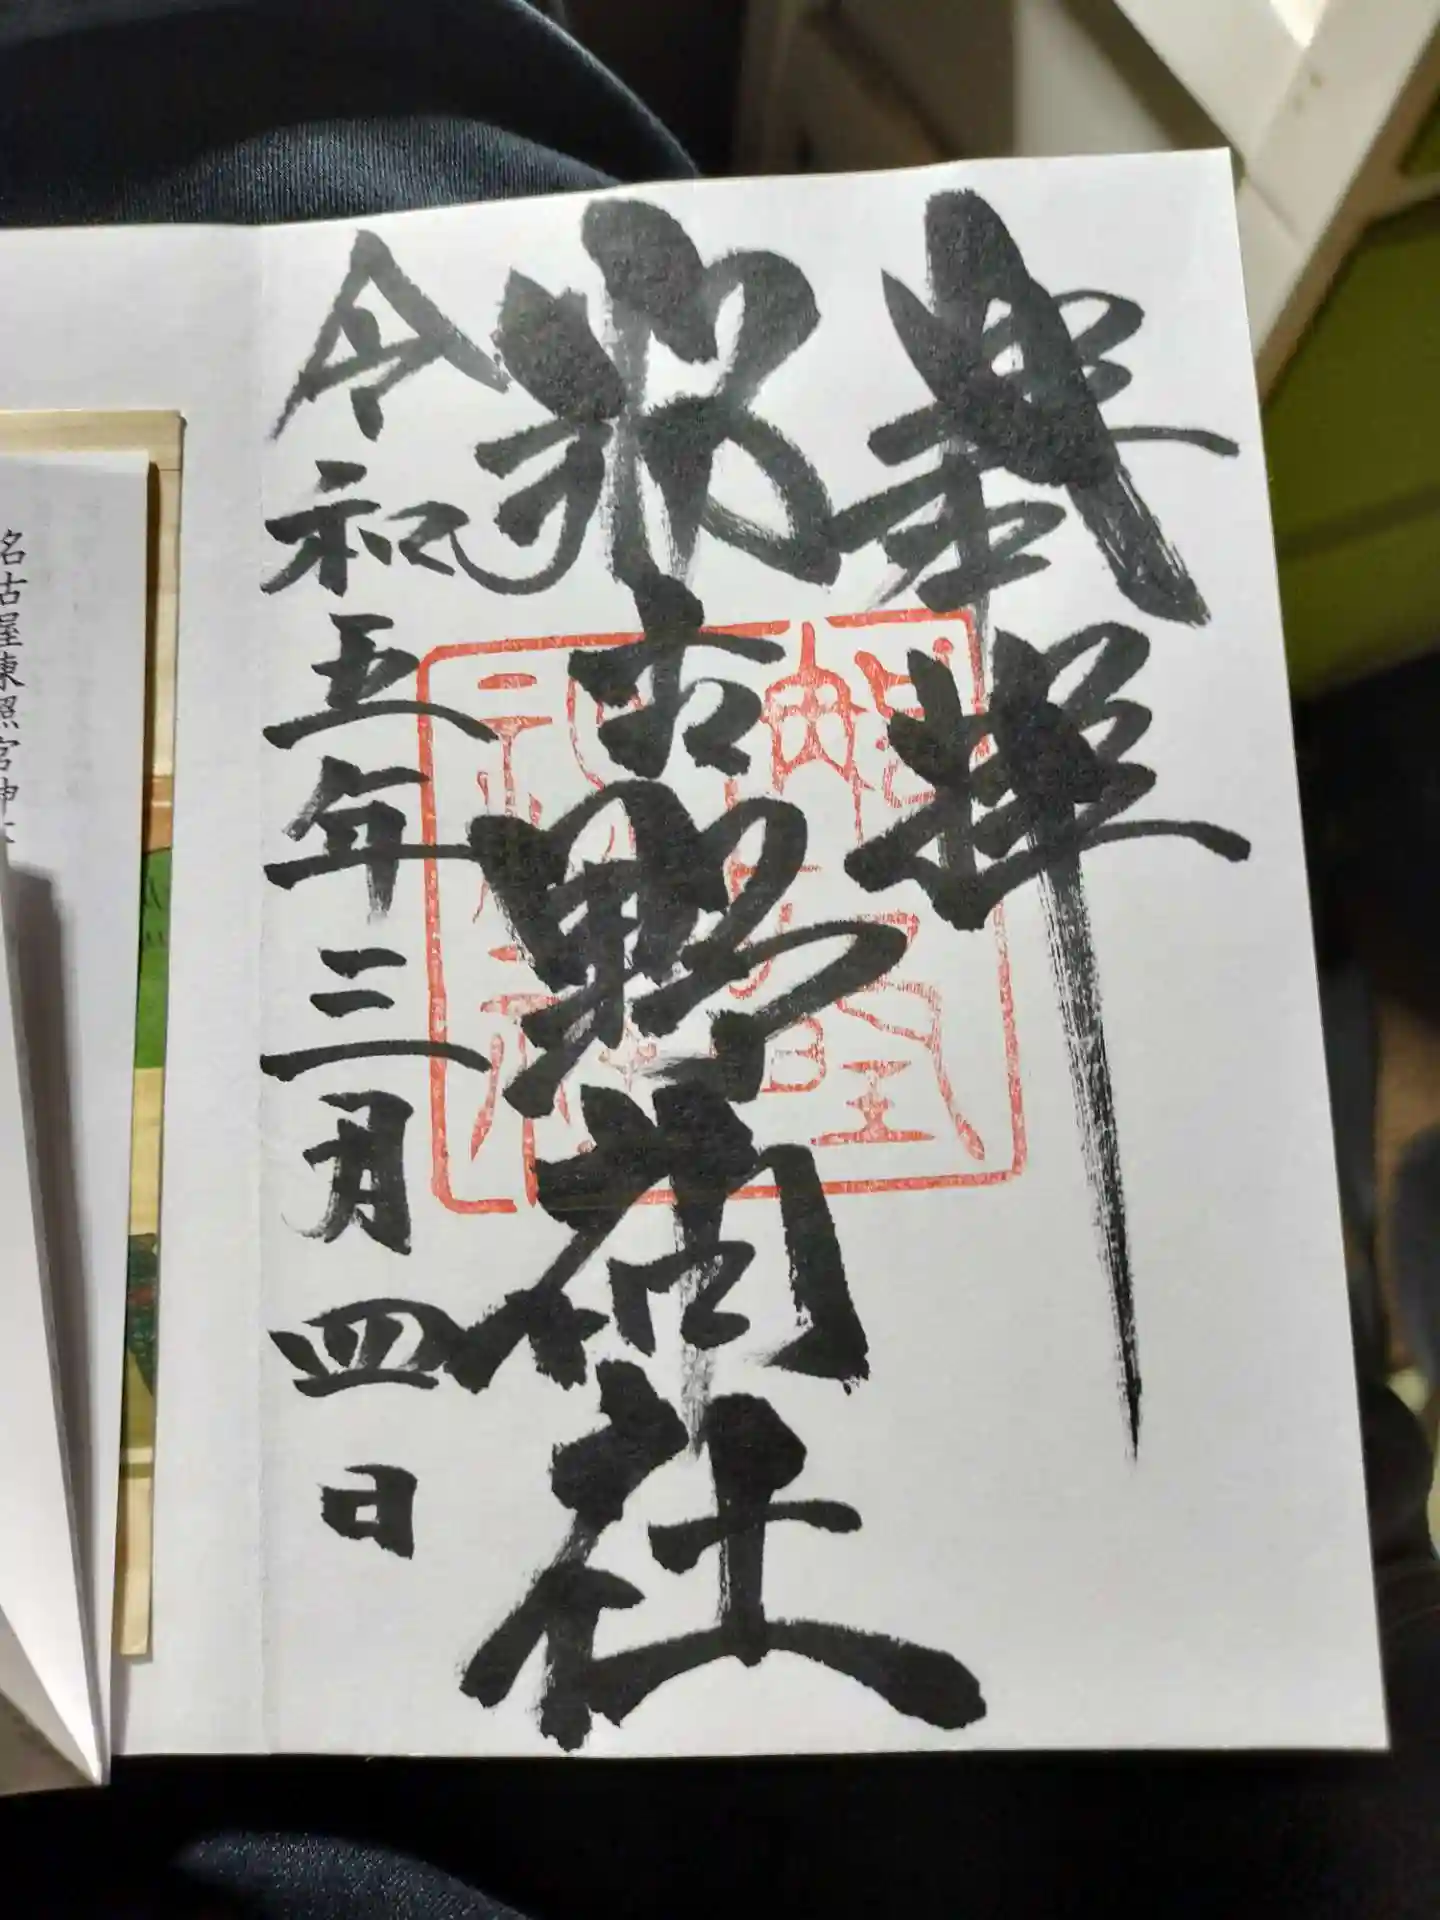 奉拝
那古野神社
令和五年三月四日
名古屋東照宮神